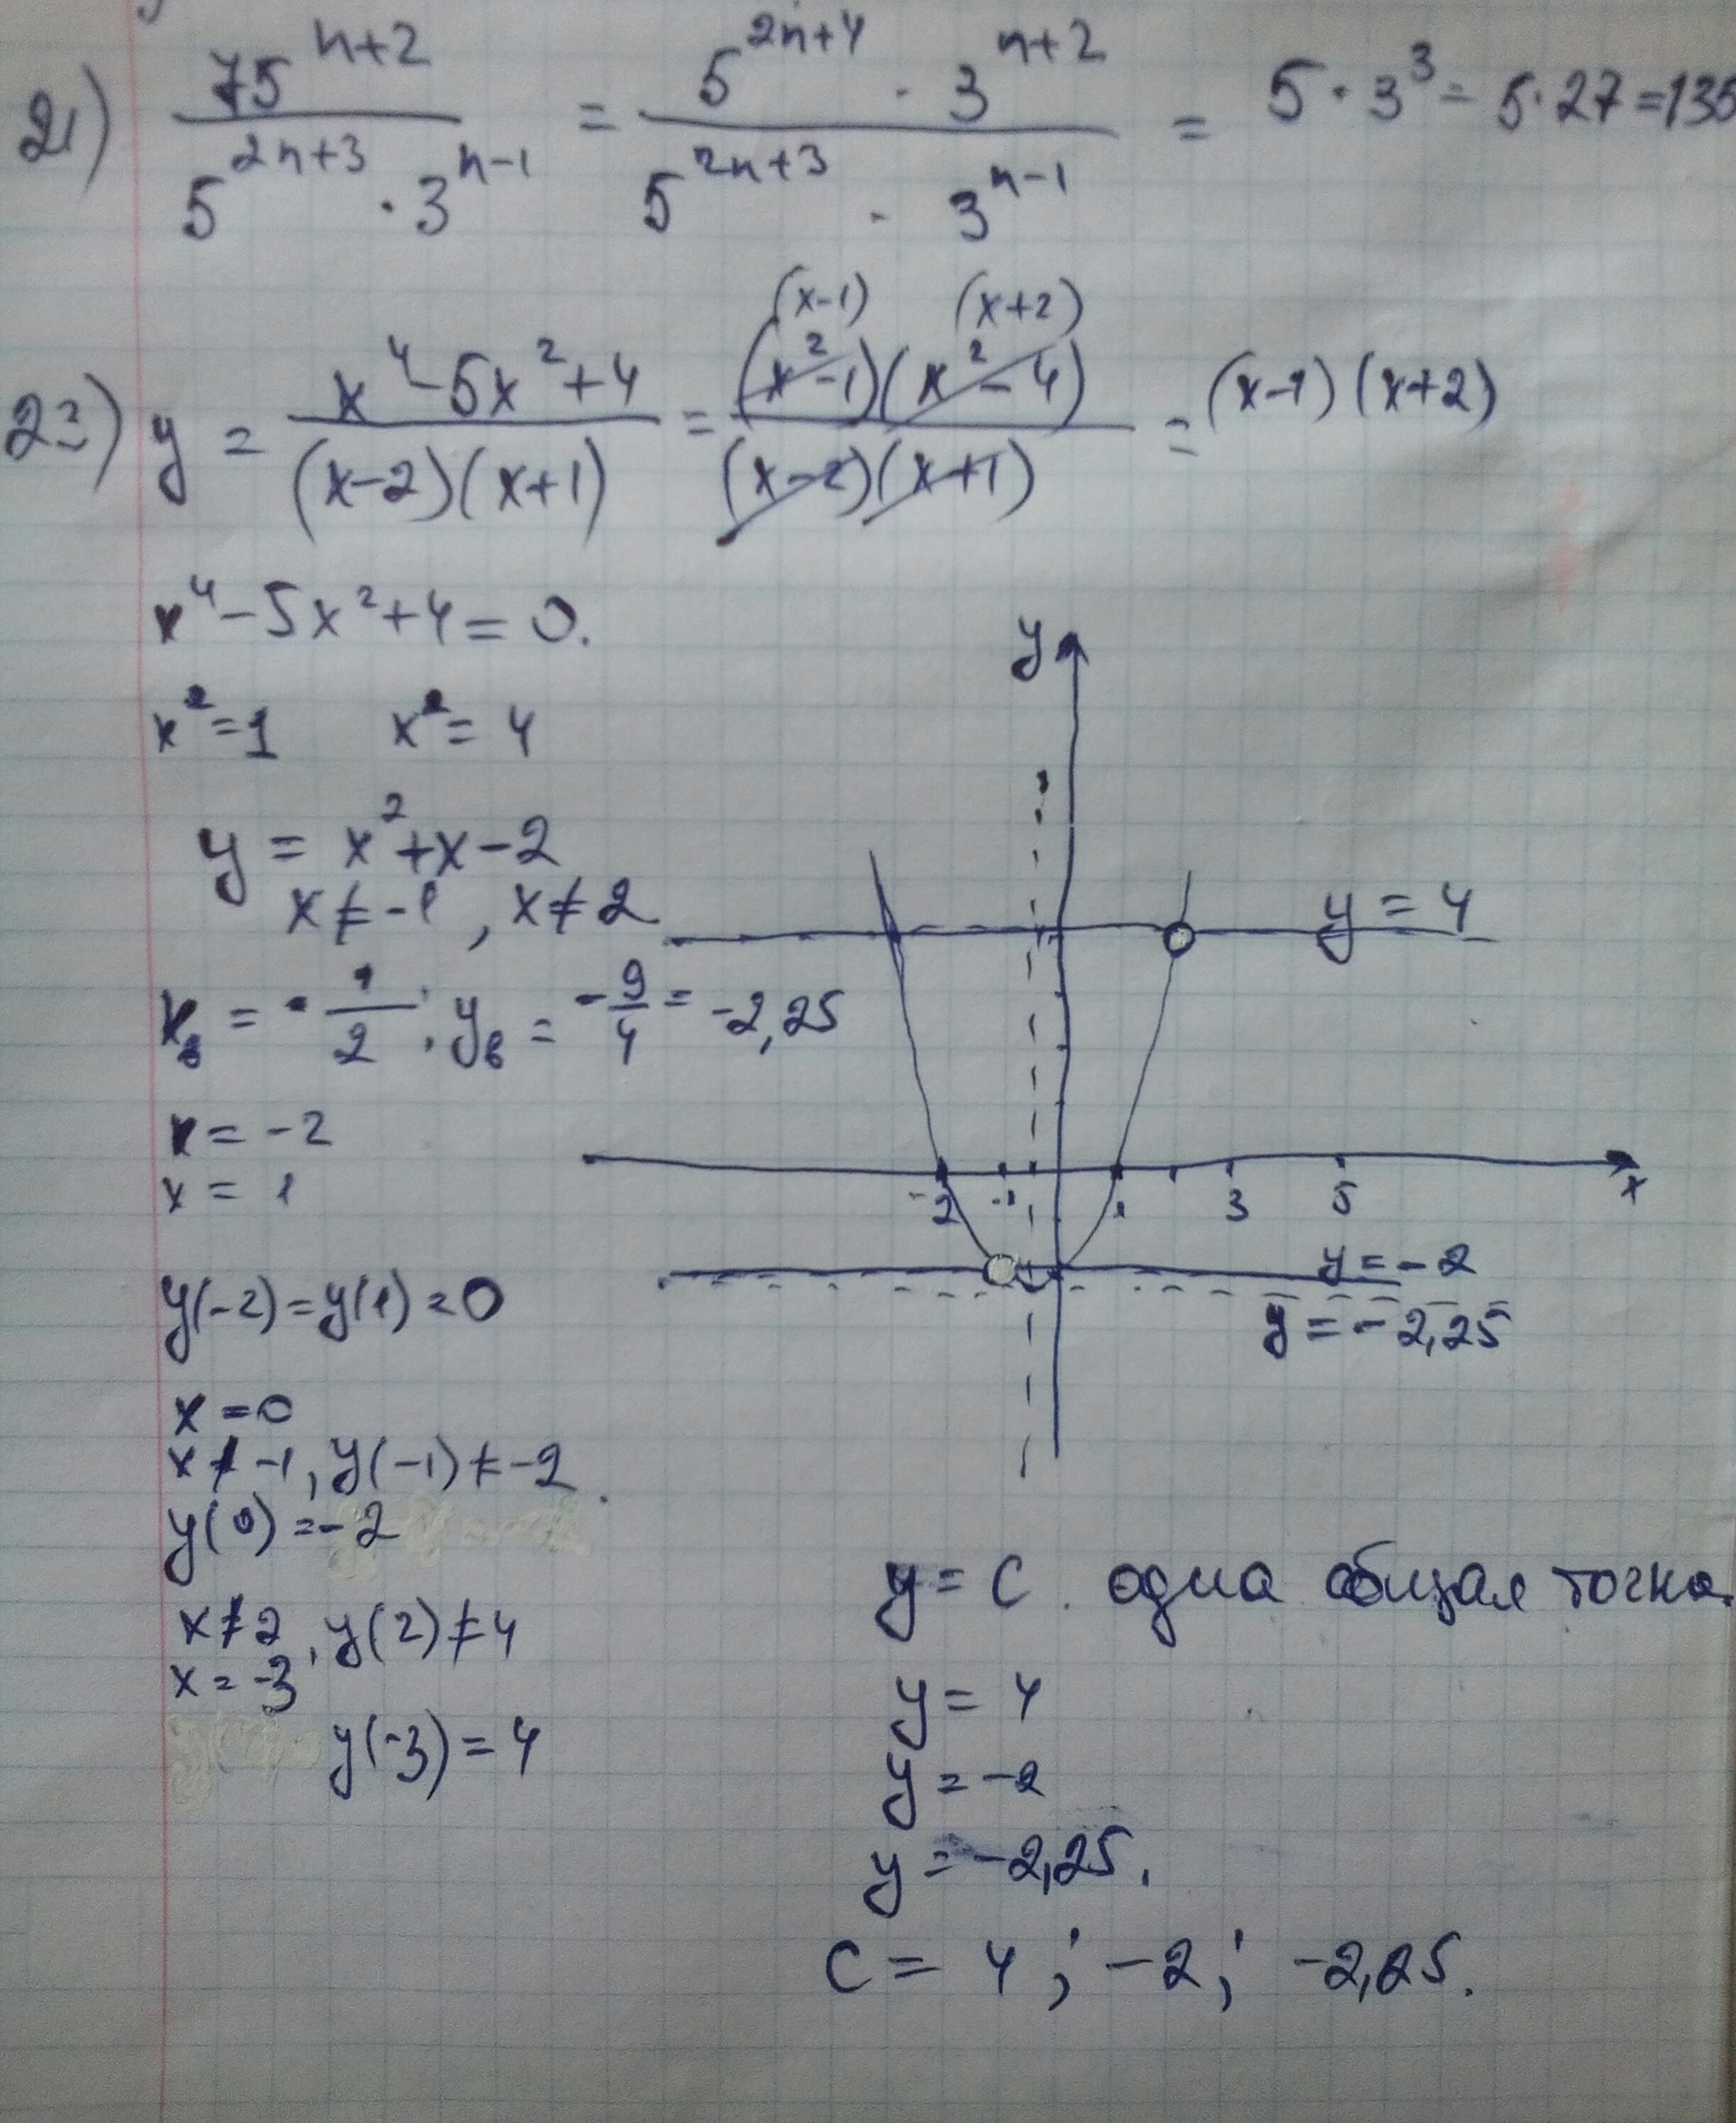 21) 75^(n+2) / (5^(2n+3) · 3^(n-1)) = (5^(2n+4) · 3^(n+2)) / (5^(2n+3) · 3^(n-1)) = 5 · 3³ = 5·27 = 135
(x-1) (x+2)
22) y = (x⁴-5x²+4) / ((x-2)(x+1)) = ((x²-1)(x²-4)) / ((x-2)(x+1)) = (x-1)(x+2)
x⁴-5x²+4=0.
x²=1 x²=4
y = x²+x-2
x≠-1, x≠2
xв = -1/2; yв = -9/4 = -2,25
x = -2
x = 1
y(-2)=y(1)=0
x=0
x≠-1, y(-1)≠-2.
y(0)=-2
x≠2, y(2)≠4
x=-3
y(-3)=4
y
y=4
-2 -1 1 3 5 x
y=-2
y=-2,25
y=c. одна общая точка.
y=4
y=-2
y=-2,25.
c=4; -2; -2,25.